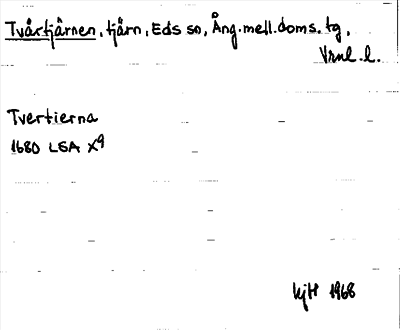 Tvärtjärnen, tjärn, Eds sn, Ång.mell.doms.tg,
Vrnl. l.
Tvertierna
1680 LSA X9
HjH 1968